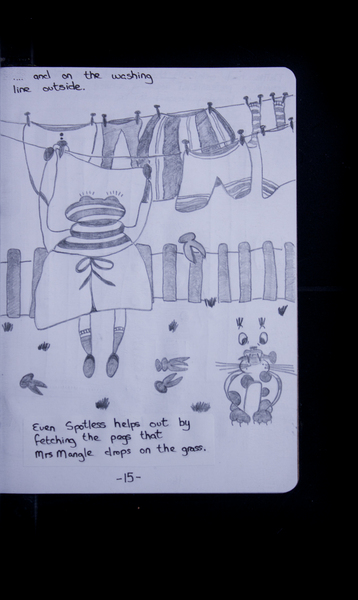 .... and on the washing
line outside.
Even Spotless helps out by
fetching the pegs that
Mrs Mangle drops on the grass.
-15-